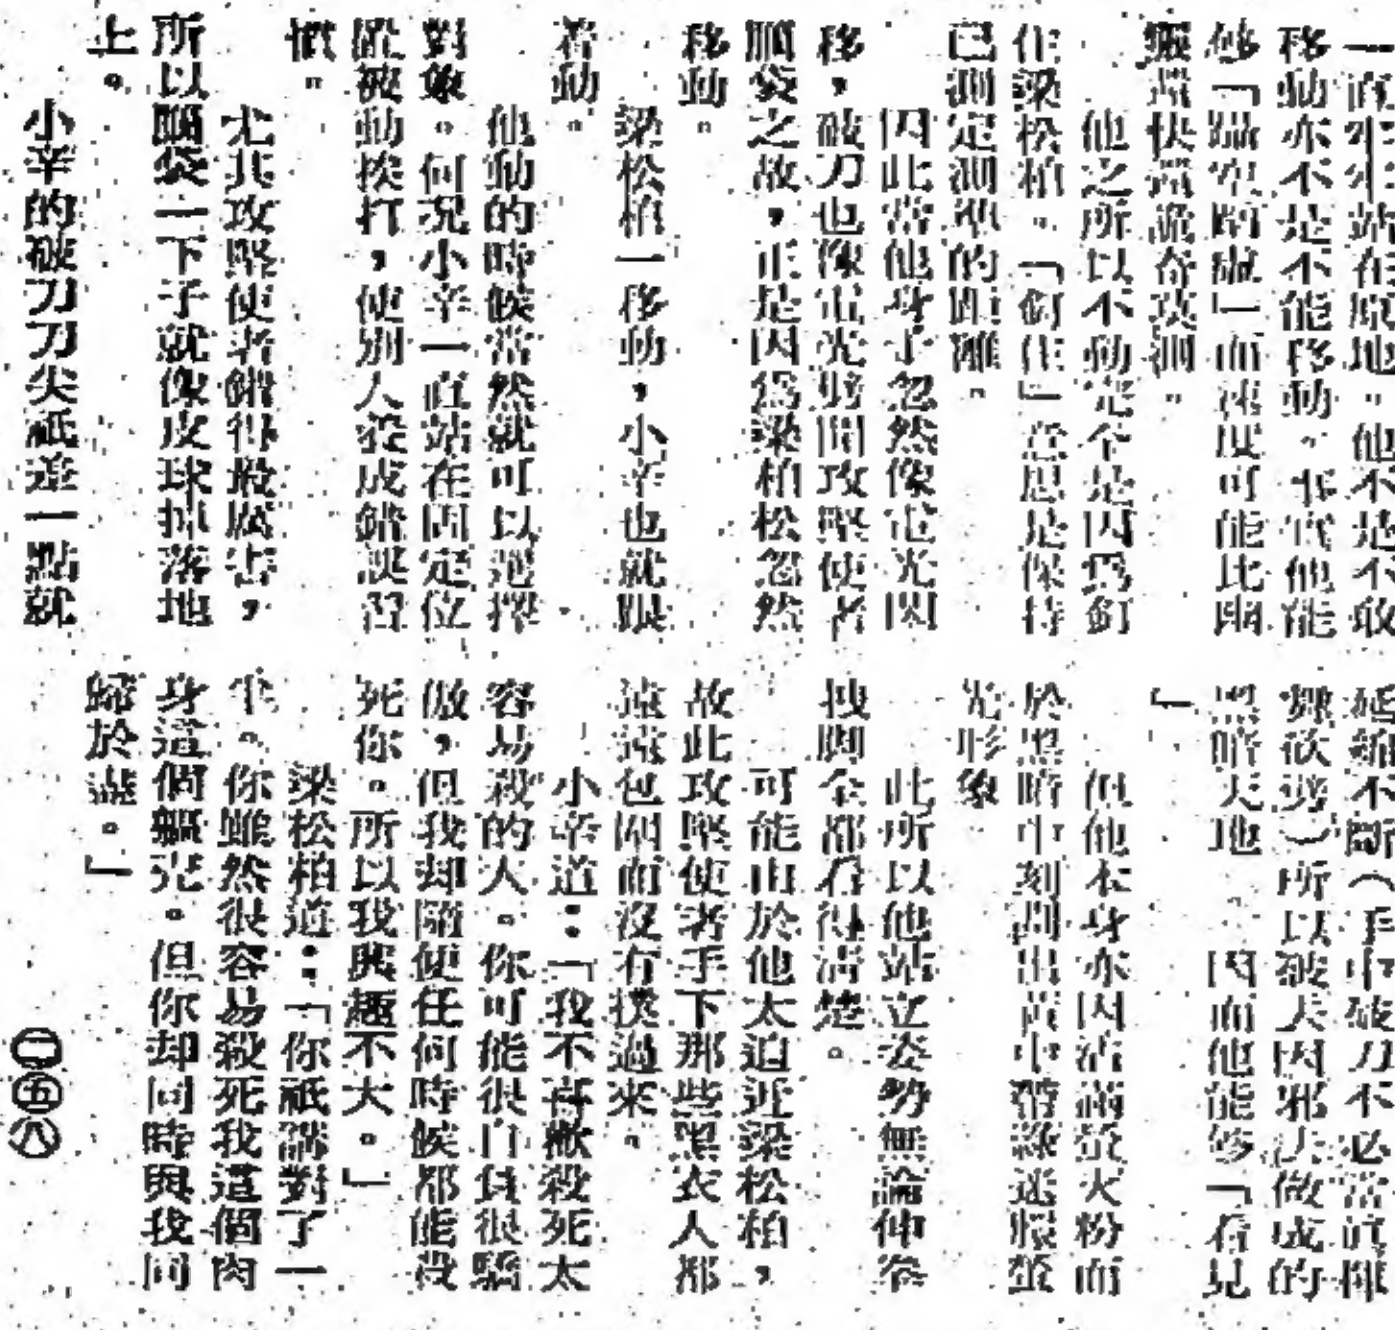 一直牢牢站在原地。他不是不敢
移動亦不是不能移動。事實他能
够「躡空蹈虛」而速度可能比幽
靈還快還詭奇莫測。
他之所以不動完全是因爲釘
住梁松柏。「釘住」意思是保持
已測定測準的距離。
因此當他身子忽然像電光閃
移，破刀也像電光劈開攻堅使者
腦袋之故，正是因爲梁柏松忽然
移動。
梁松柏一移動，小辛也就跟
着動。
他動的時候當然就可以選擇
對象。何況小辛一直站在固定位
置被動挨打，使別人養成錯誤習
慣。
尤其攻堅使者錯得最厲害，
所以腦袋一下子就像皮球掉落地
上。
小辛的破刀刀尖祇差一點就
延綿不斷（手中破刀不必當眞陣
欲）所以被大因邪法做成的
黑暗天地　因而他能够「看見
」
但他本身亦因沾滿螢火粉而
於黑暗中刻劃出黃中帶綠迷朦螢
光形象
此所以他站立姿勢無論伸拳
拽脚全都看得清楚。
可能由於他太迫近梁松柏，
故此攻堅使者手下那些黑衣人都
遠遠包圍而沒有撲過來。
小辛道：「我不喜歡殺死太
容易殺的人。你可能很自負很驕
傲，但我却隨便任何時候都能殺
死你。所以我興趣不大。」
梁松柏道：「你祇講對了一
半。你雖然很容易殺死我這個肉
身這個軀壳。但你却同時與我同
歸於盡。」
二五八